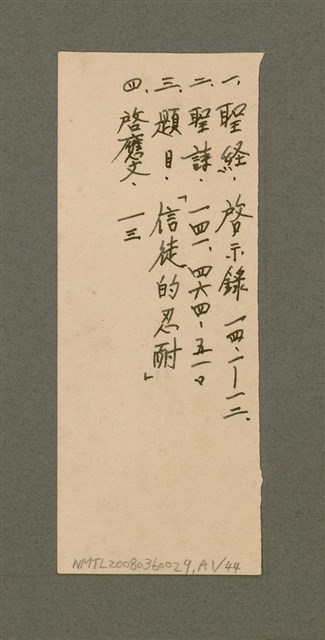 一、聖経、啓示錄 一四、1—一二、
二、聖詩、一四一、四六四、五一〇
三、題目、「信徒的忍耐」
四、啓應文、一三
NMTL20080360029, A1/44